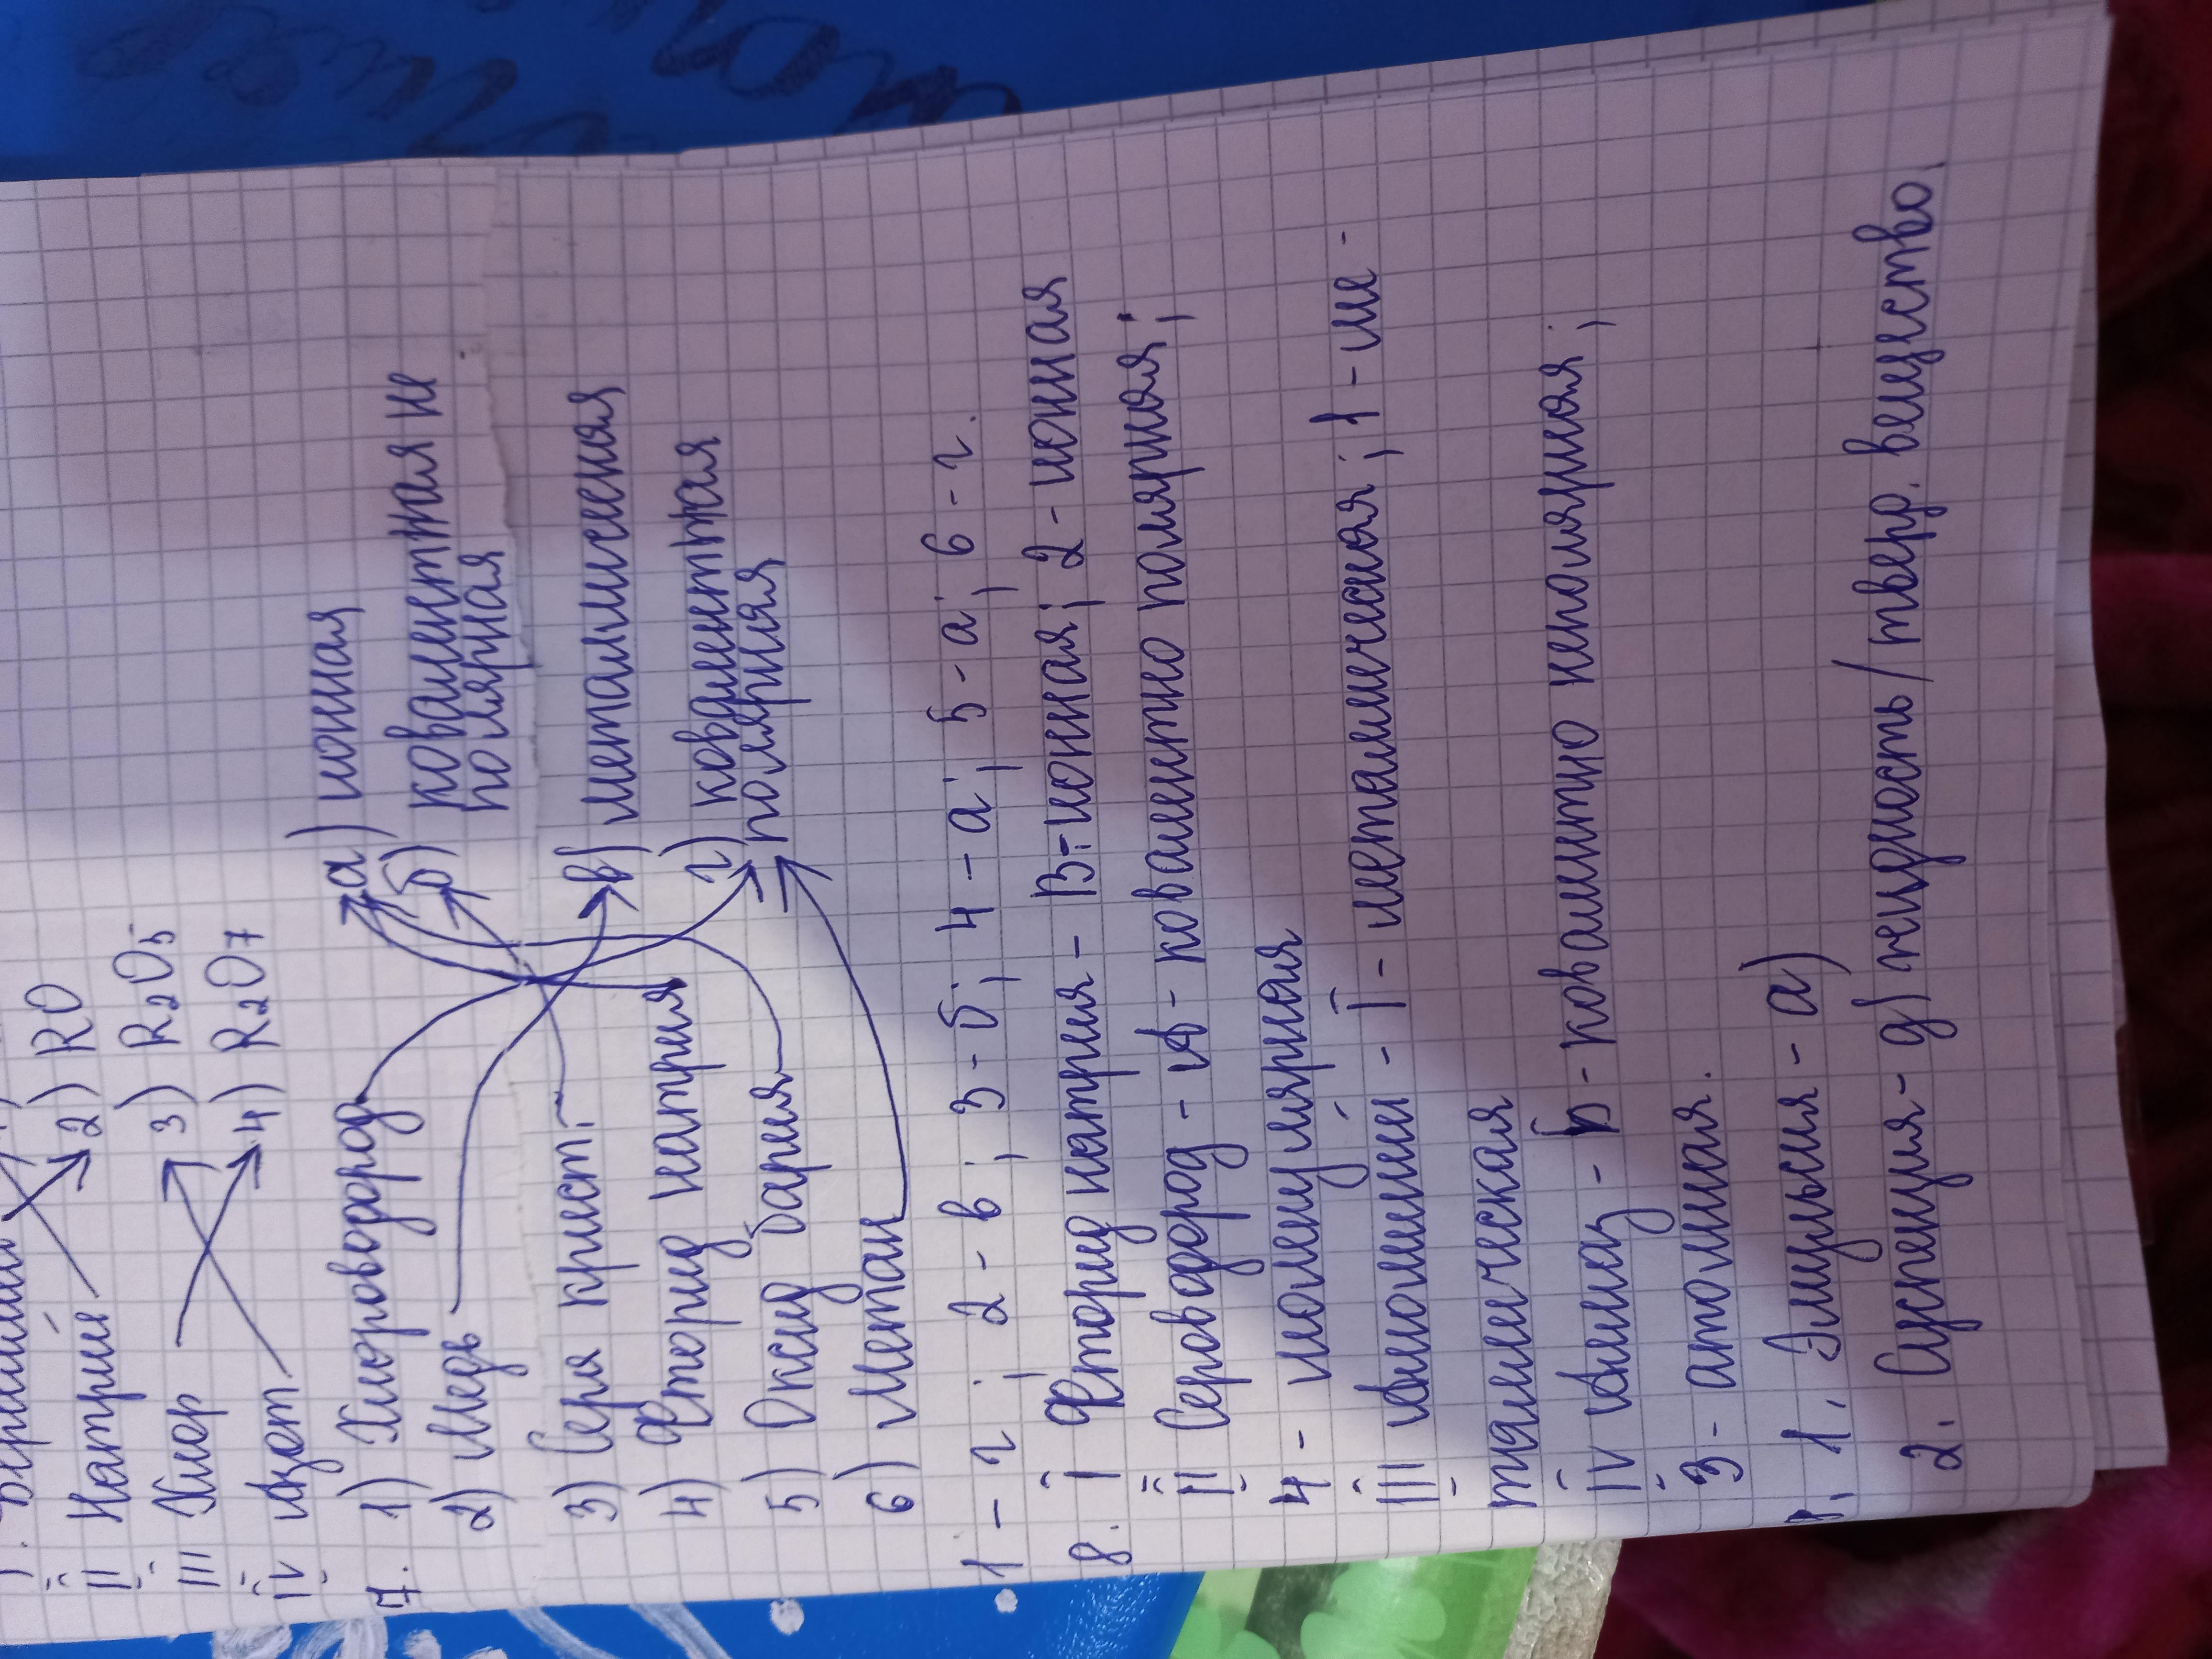 II Натрий 2) RO
III Хлор 3) R₂O₅
IV Азот 4) R₂O₇
7. 1) Хлороводород а) ионная
2) Медь б) ковалентная не
полярная
3) Сера крист. в) металлическая
4) Фторид натрия г) ковалентная
полярная
5) Оксид бария
6) Метан
1 - г; 2 - в; 3 - б; 4 - а; 5 - а; 6 - г.
8. I Фторид натрия - В - ионная; 2 - ионная
II Сероводород - А - ковалентно полярная;
4 - молекулярная
III Алюминий - Г - металлическая; 1 - ме-
таллическая
IV Алмаз - Б - ковалентно неполярная;
3 - атомная.
1. Эмульсия - а)
2. Суспензия - д) жидкость / тверд. вещество.